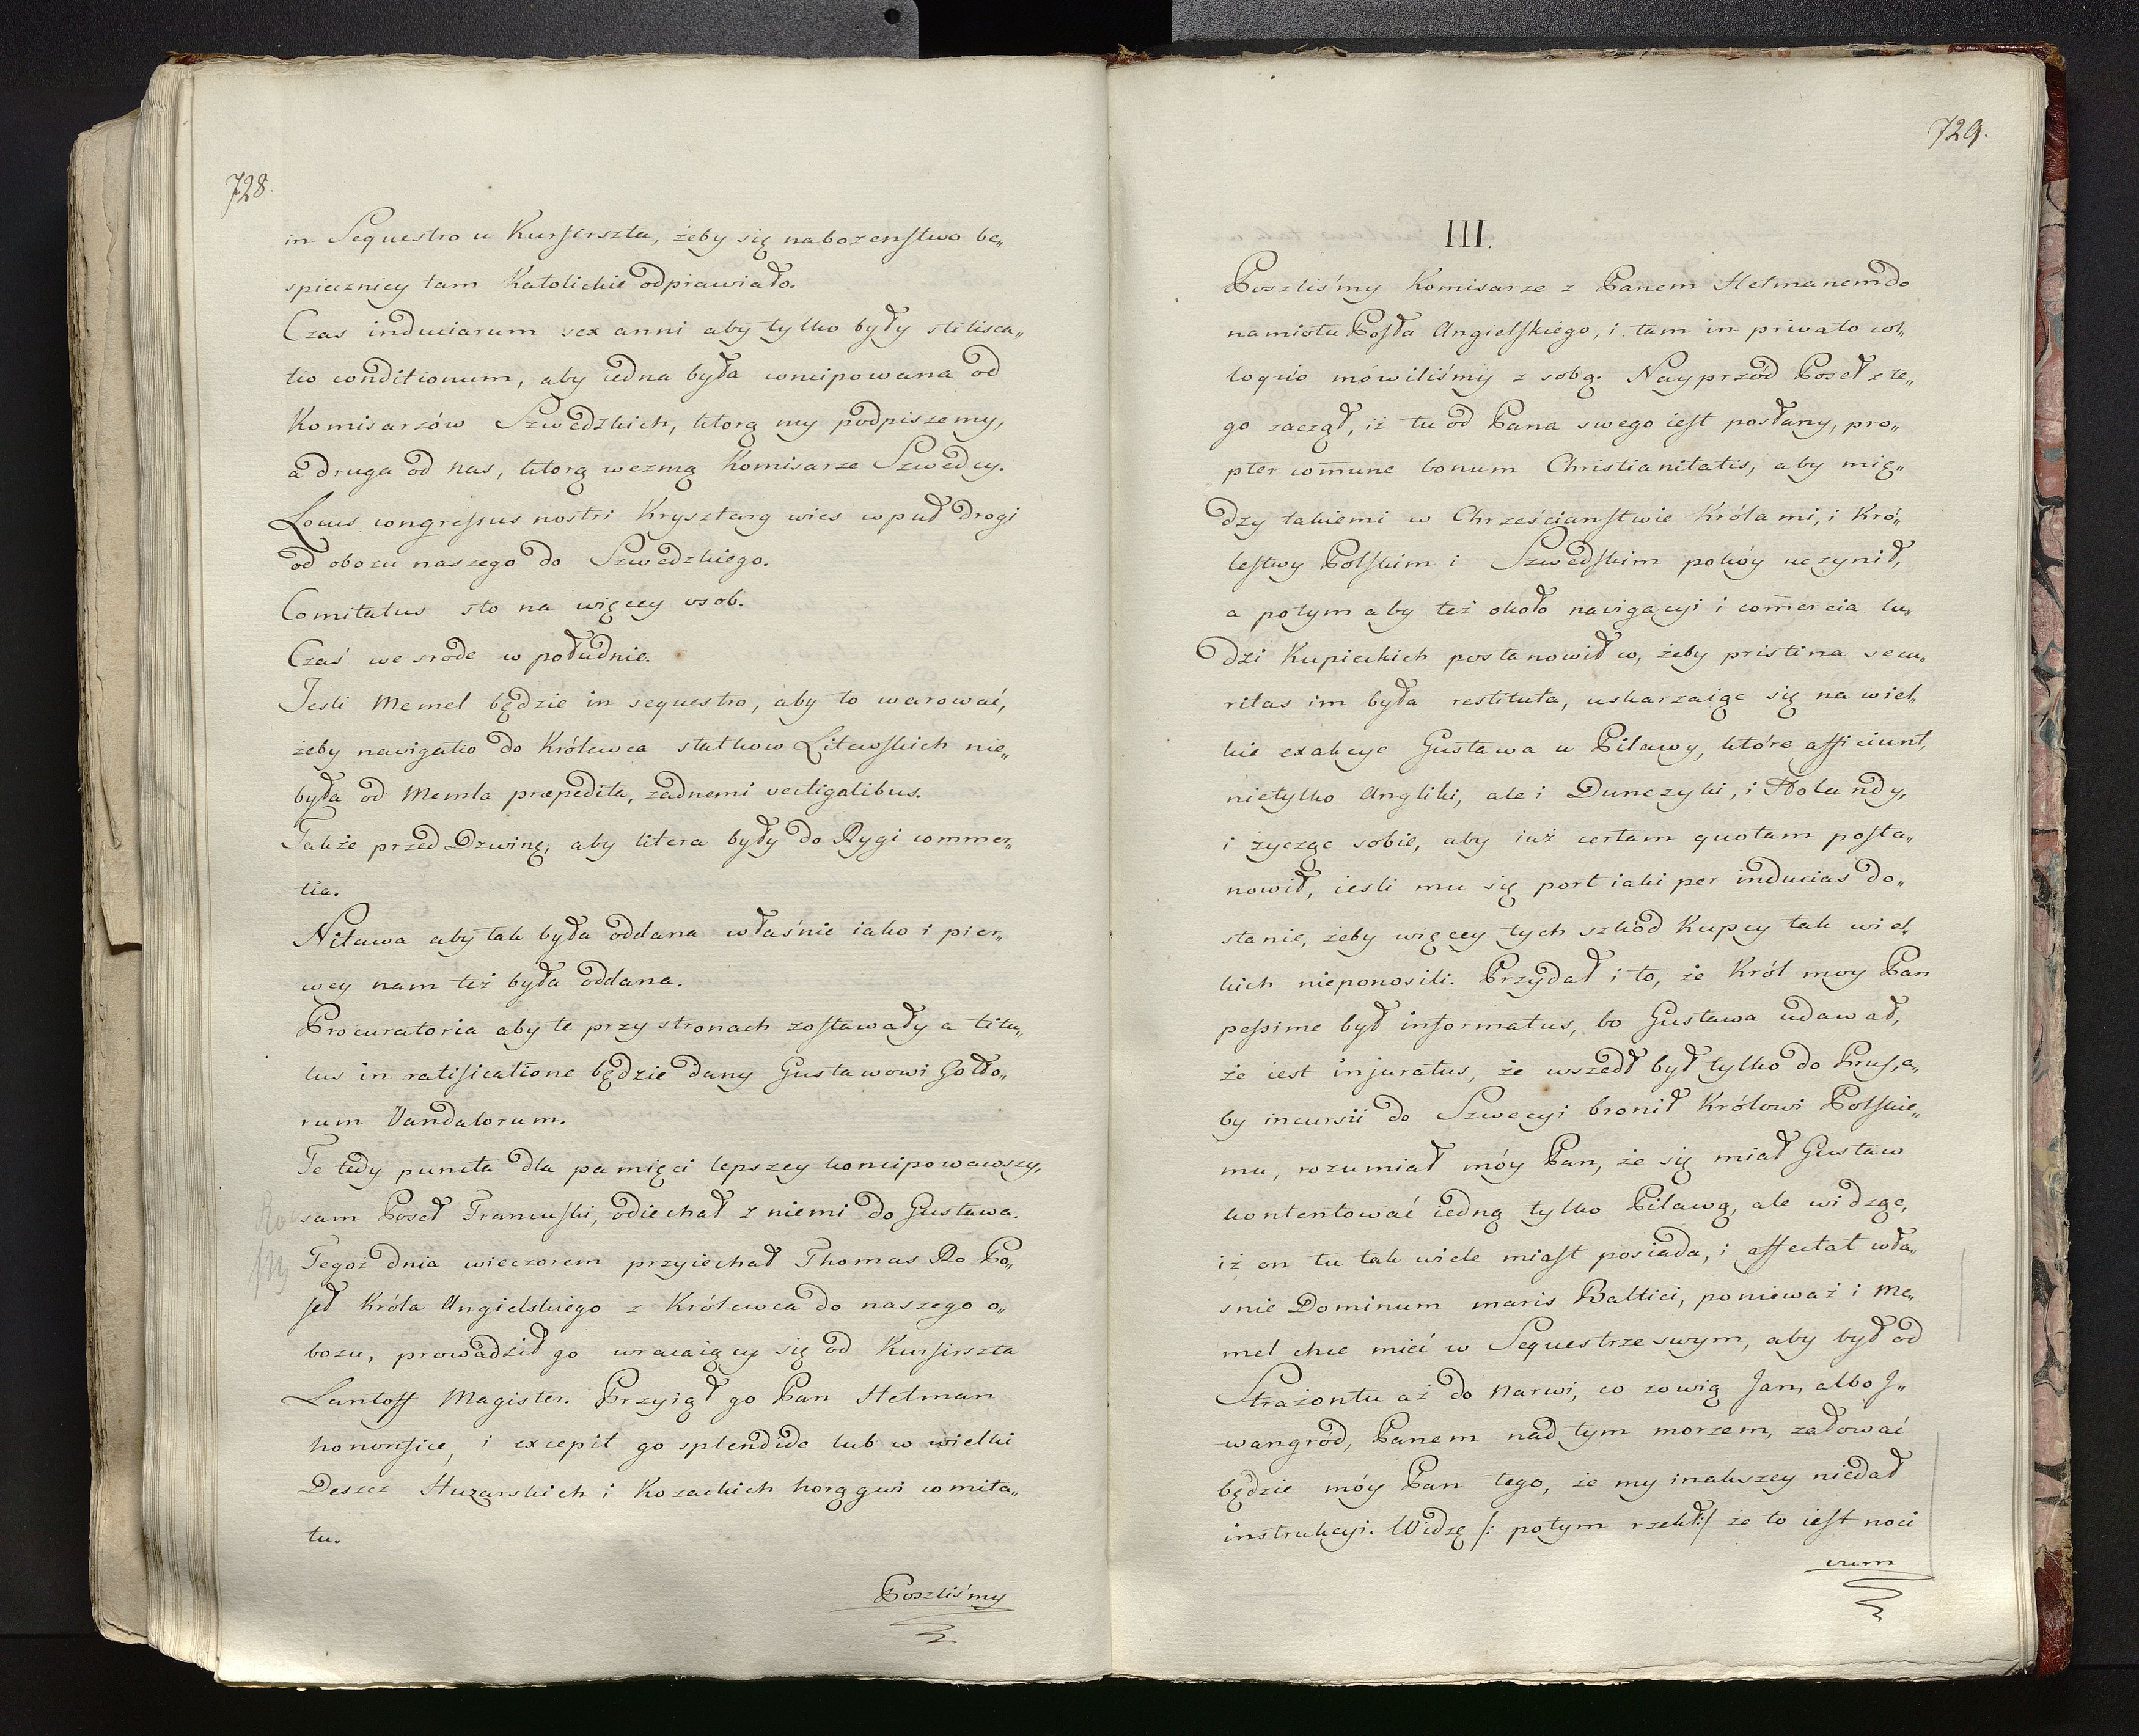 728.
in Sequestro u Kurfirszta, żeby się nabozenstwo be„
spieczniey tam Katolickie odprawiało.
Czas induciarum sex anni aby tylko były stilisca„
tio conditionum, aby iedna była concipowana od
Komisarzów Szwedzkich, ktorą my podpiszemy,
a druga od nas, ktorą wezmą Komisarze Szwedcy.
Locus congressus nostri Krysztarg wies w puł drogi
od obozu naszego do Szwedzkiego.
Comitatus sto na więcey osob.
Czaś we srode w południe.
Jesli Memel będzie in sequestro, aby to warować,
żeby navigatio do Królewca statkow Litewskich nie„
była od Memla præpedita, żadnemi vectigalibus.
Także przed Dzwinę, aby litera były do Rygi commer„
tia.
Nitawa aby tak była oddana właśnie iako i pier„
wey nam też była oddana.
Procuratoria aby te przy stronach zostawały a titu„
lus in ratificatione będzie dany Gustawowi Gotto„
rum Vandalorum.
Te tedy puncta dla pamięci lepszey koncipowawszy,
sam Poseł Francuski, odiechał z niemi do Gustawa.
Tegoż dnia wieczorem przyiechał Thomas Ro Po„
seł Króla Angielskiego z Królewca do naszego o„
bozu, prowadził go wracaiący się od Kurfirszta
Lantoff Magister. Przyiął go Pan Hetman
honorifice, i excepit go splendide lub w wielki
Deszcz Huzarskich i Kozackich horągwi comita„
tu.
Poszliśmy
729.
III.
Poszliśmy Komisarze z Panem Hetmanem do
namiotu Posła Angielskiego, i tam in privato col„
loquio mówiliśmy z sobą. Nayprzód Poseł z te„
go zaczął, iż tu od Pana swego iest posłany, pro„
pter com̄une bonum Christianitatis, aby mię„
dzy takiemi w Chrześcianstwie Królami, i Kró„
lestwy Polskim i Szwedskim pokóy uczynił,
a potym aby też około navigacyi i com̄ercia lu„
dzi Kupieckich postanowił co, żeby pristina secu„
ritas im była restituta, uskarzaiąc się na wiel„
kie exakcye Gustawa u Pilawy, które afficiunt,
nietylko Angliki, ale i Dunczyki, i Holandy,
i życząc sobie, aby iuż certam quotam posta„
nowił, iesli mu się port iaki per inducias do„
stanie, żeby więcey tych szkód Kupcy tak wiel„
kich nieponosili. Przydał i to, że Król moy Pan
pessime był informatus, bo Gustawa udawał,
że iest injuratus, że wszedł był tylko do Prus, a„
by incursii do Szwecyi bronił Królowi Polskie„
mu, rozumiał móy Pan, że się miał Gustaw
kontentować iedną tylko Pilawą, ale widząc,
iż on tu tak wiele miast posiada, i affectat wła„
snie Dominum maris Baltici, ponieważ i Me„
mel chce mieć w Sequestrze swym, aby był od
Strażontu aż do Narwi, co zowią Jan, albo J„
wangród, Panem nad tym morzem, załować
będzie móy Pan tego, że my inakszey niedał
instrukcyi. Widzę /: potym rzekł:/ że to iest noci
vum